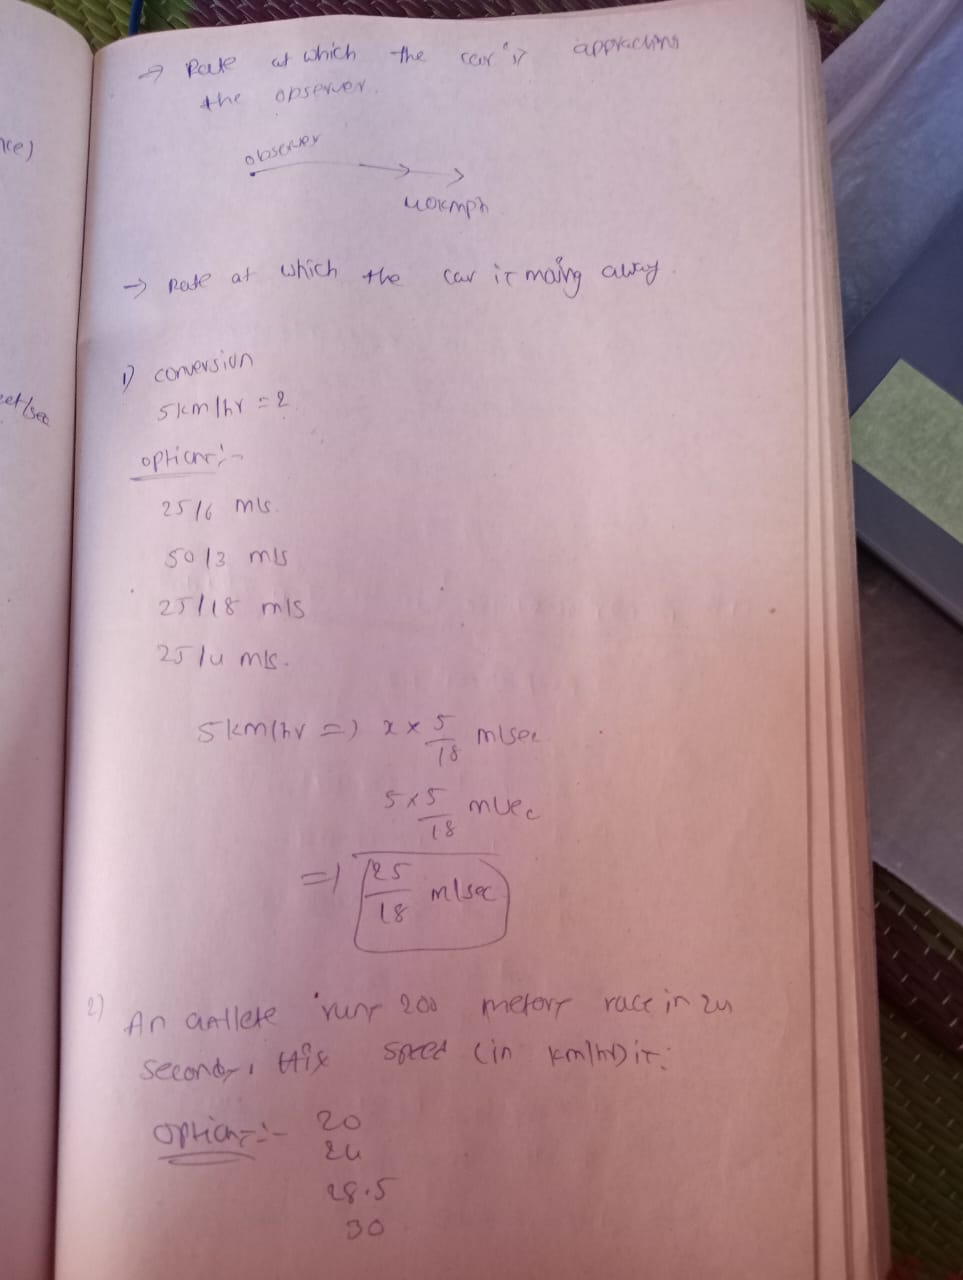 nce)
eet/sec
→ Rate at which the car is approaching
the observer.
observer
40kmph
→ Rate at which the car is moving away
1) conversion
5km/hr = ?
options:-
25/6 m/s.
50/3 m/s
25/18 m/s
25/4 m/s.
5km/hr => x × 5/18 m/sec
5×5/18 m/sec
=> 25/18 m/sec
2) An athlete runs 200 meters race in 24
seconds, his speed (in km/hr) is:
options:- 20
24
28.5
30